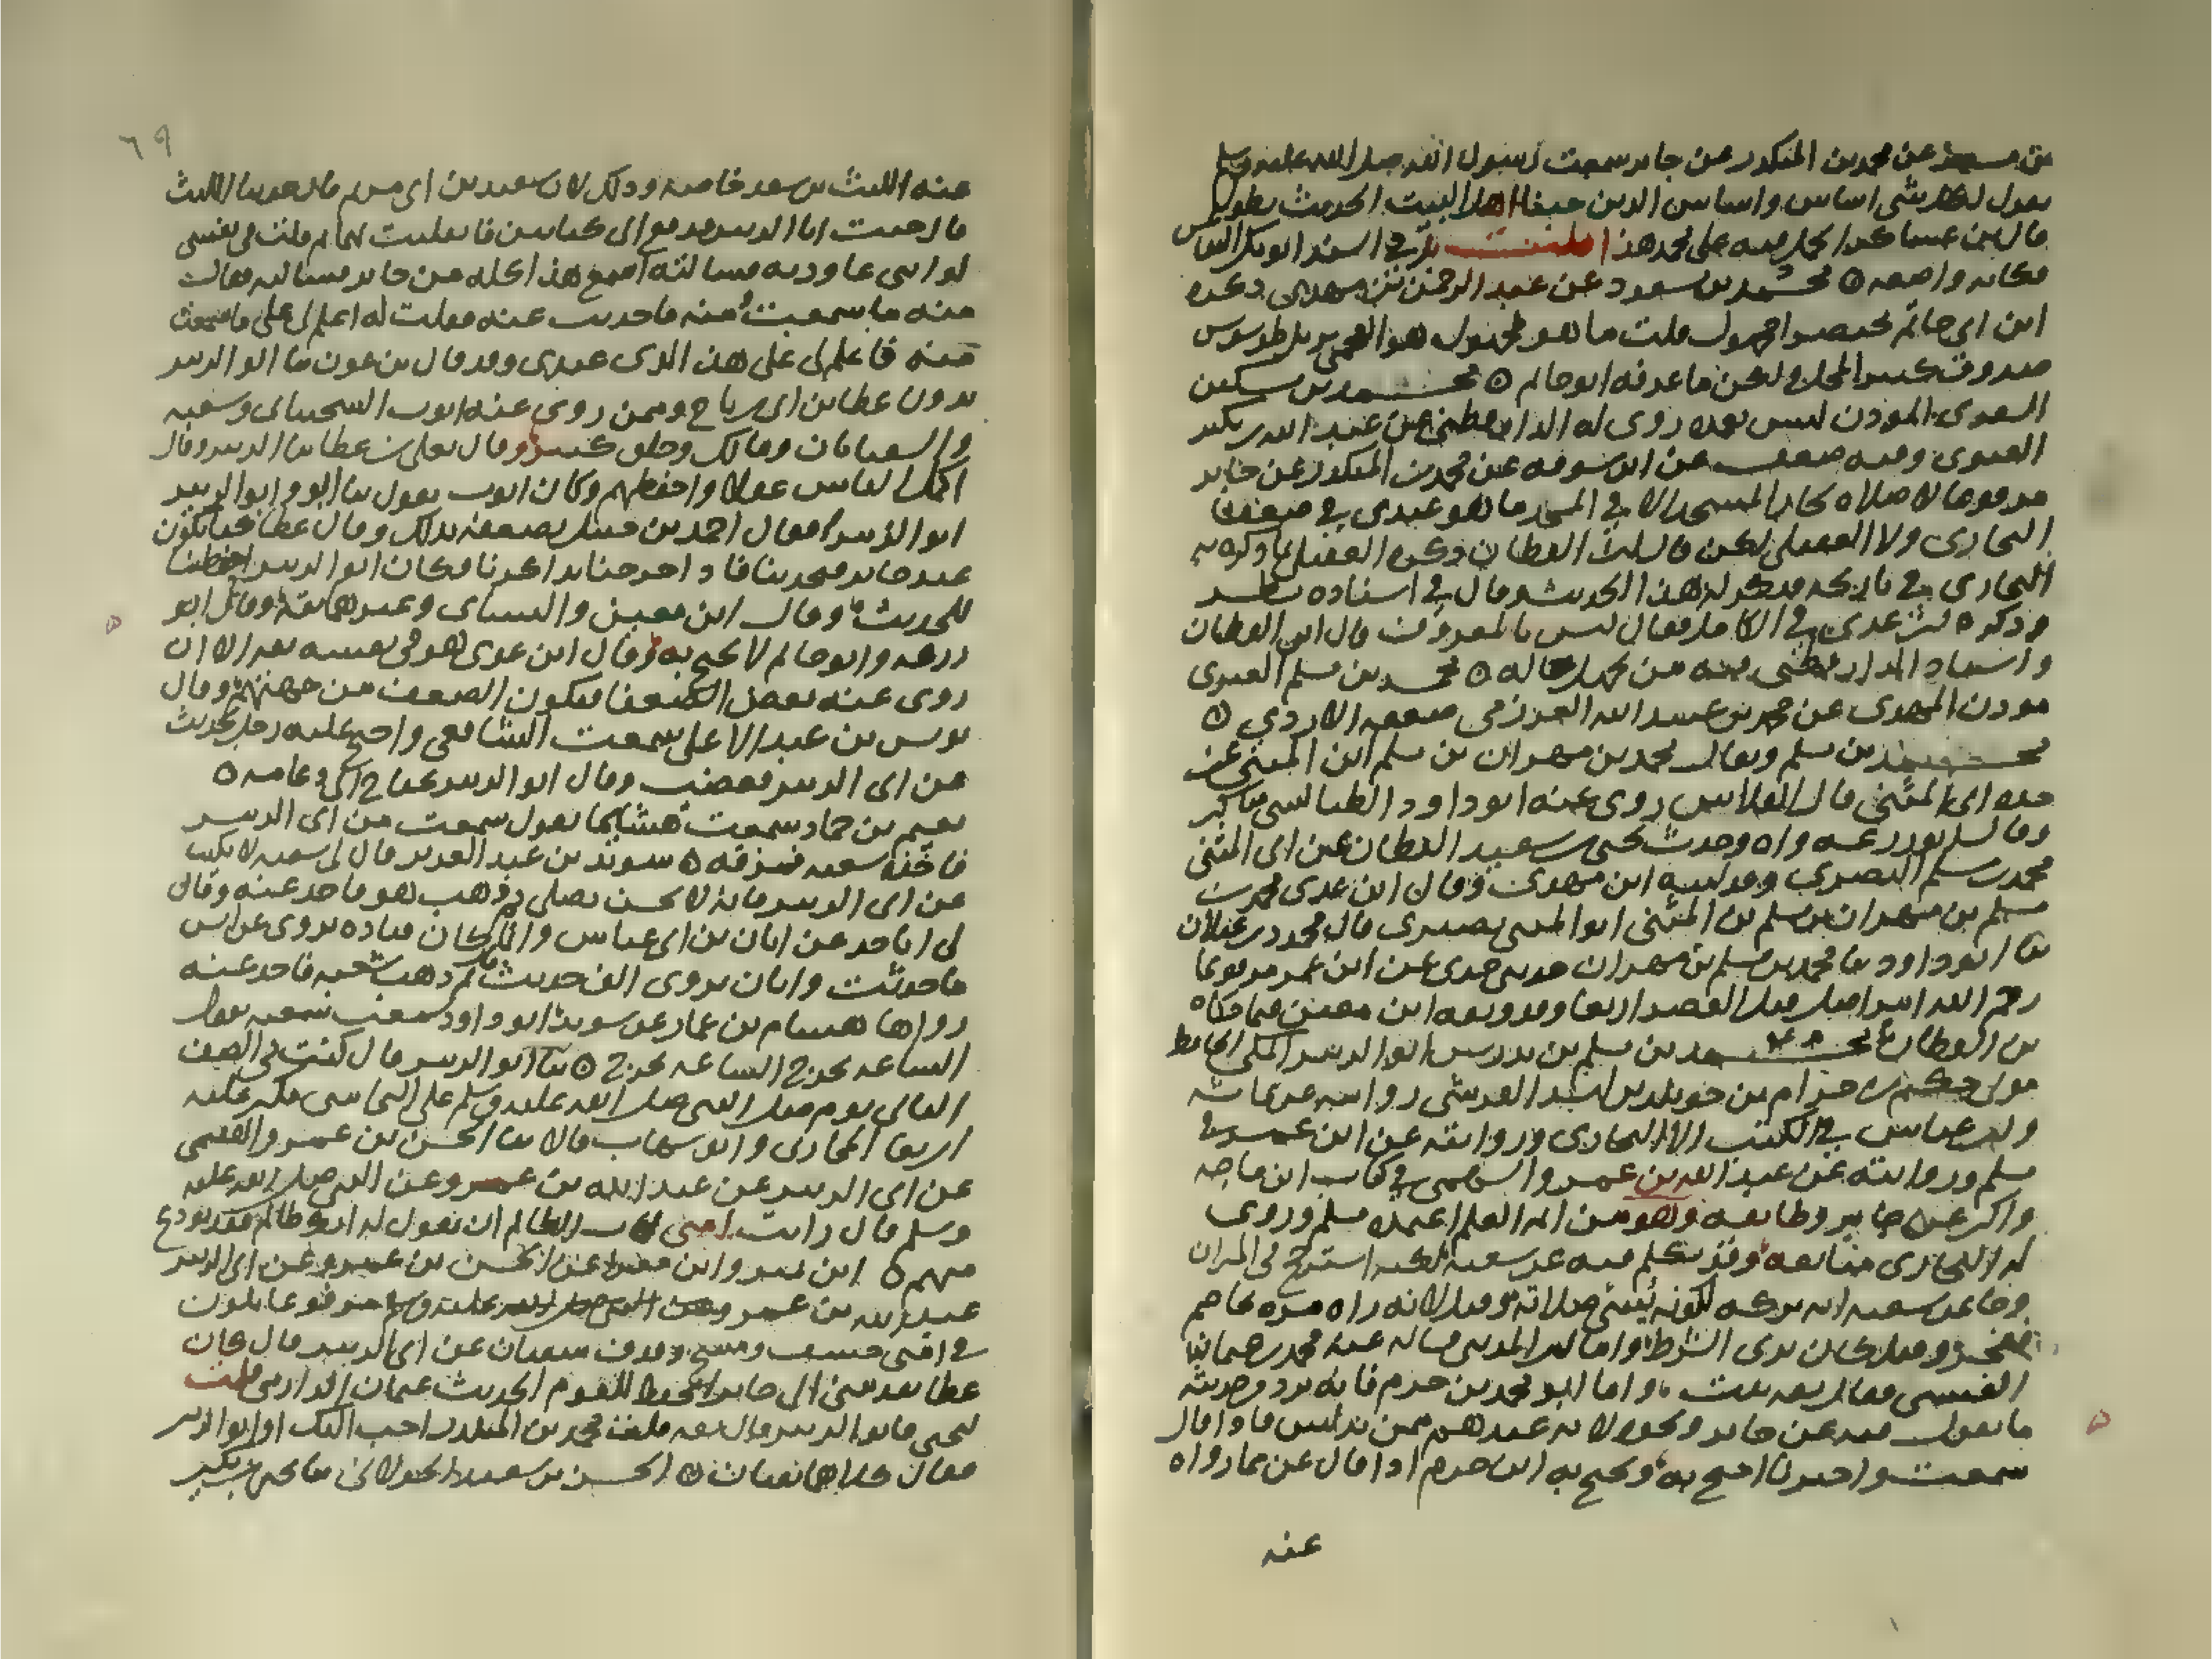 بن مسعر عن محمد بن المنكدر عن جابر سمعت رسول الله صلى الله عليه وسلم
يقول لكل شي اساس واساس الدين حبنا اهل البيت الحديث بطوله
قال ابن عساكر الحمل فيه على محمد هذا قلت في السند ابو بكر النقاش
فكانه واضعه ۞ محمد بن مسعود عن عبد الرحمن بن مهدي ذكره
ابن ابي حاتم مختصرا مجهول قلت ما هو بمجهول هو العجمي نزيل طرسوس
صدوق كبير المحل ولكن ما عرفه ابو حاتم ۞ محمد بن سكين
المودن ليس بعمدة روى له الدارقطني عن عبد الله بن بكير
الغنوي وفيه ضعف عن ابن سوقة عن محمد بن المنكدر عن جابر
مرفوعا لا صلاة لجار المسجد الا في المسجد ما هو عندي في ضعفا
البخاري ولا العقيلي لكن قال ابن القطان ذكره العقيلي كما ذكره
البخاري في تاريخه فذكر له هذا الحديث وقال في اسناده نظر
وذكره ابن عدي في الكامل فقال ليس بالمعروف قال ابن القطان
واسناد الدارقطني فيه من يجهل حاله ۞ محمد بن مسلم العنبري
مودن المهدي عن محمد بن عبيد الله العرزمي ضعفه الازدي ۞
محمد بن مسلم ويقال محمد بن مهران بن مسلم ابن المثنى عن
جده ابي المثنى قال الفلاس روى عنه ابو داود الطيالسي مناكير
وقال ابو زرعة واه وحدث يحيى بن سعيد القطان عن ابي المثنى
محمد بن مسلم البصري وقد لينه ابن مهدي وقال ابن عدي محمد بن
مسلم بن مهران بن مسلم بن المثنى ابو المثنى بصري قال محمود بن غيلان
ثنا ابو داود ثنا محمد بن مسلم بن مهران حدثني جدي عن ابن عمر مرفوعا
رحم الله امرا صلى قبل العصر اربعا وقد وثقه ابن معين فيما حكاه
بن القطان محمد بن مسلم بن تدرس ابو الزبير المكي الحافظ
مولى حكيم بن حزام بن خويلد بن اسد القرشي روايته عن عائشة
وابن عباس في الكتب الا البخاري وروايته عن ابن عمر في
مسلم وروايته عن عبد الله بن عمرو السهمي في كتاب ابن ماجه
واكثر عن جابر وطائفة وهو من ائمة العلم اعتمده مسلم وروى
له البخاري متابعة وقد تكلم فيه شعبة لكونه استرجح في الميزان
وجاء عن شعبة انه تركه لكونه يسيء صلاته وقيل لانه راه مرة يخاصم
ففجر وقيل كان يرى الشرط واما ابن المديني فساله عنه محمد بن عثمان
العبسي فقال ثقة ثبت واما ابو محمد بن حزم فانه يرد من حديثه
ما يقول فيه عن جابر ونحوه لانه عندهم ممن يدلس فاذا قال
سمعت واخبرنا احتج به ويحتج به ابن حزم اذا قال عن مما رواه
عنه
٦٩
عنه الليث بن سعد خاصة وذلك لان سعيد بن ابي مريم قال حدثنا الليث
قال جئت ابا الزبير فدفع الي كتابين فانقلبت بهما ثم قلت في نفسي
لو انني عاودته فسالته اسمع هذا كله من جابر فسالته فقال
منه ما سمعت ومنه ما حدثت عنه فقلت له اعلم لي على ما سمعت
منه فاعلم لي على هذا الذي عندي وقد قال بن عون ما ابو الزبير
بدون عطا بن ابي رباح وممن روى عنه ايوب السختياني وشعبة
والسفيانان ومالك وخلق كثير وقال يعلى بن عطا ثنا ابو الزبير وكان
اكمل الناس عقلا واحفظهم وكان ايوب يقول ثنا ابو الزبير وابو الزبير
ابو الزبير فقال احمد بن حنبل يضعفه بذلك وقال عطا كنا نكون
عند جابر فيحدثنا فاذا خرجنا تذاكرنا فكان ابو الزبير احفظنا
للحديث وقال ابن معين والنسائي وغيرهما ثقة وقال ابو
زرعة وابو حاتم لا يحتج به وقال ابن عدي هو في نفسه ثقة الا ان
روى عنه بعض الضعفا فيكون الضعف من جهتهم وقال
يونس بن عبد الاعلى سمعت الشافعي واحتج عليه رجل بحديث
عن ابي الزبير فغضب وقال ابو الزبير يحتاج الى دعامة ۞
نعيم بن حماد سمعت هشيما يقول سمعت من ابي الزبير
فاخذه شعبة فمزقه ۞ سويد بن عبد العزيز قال لي شعبة لا تكتب
عن ابي الزبير فانه لا يحسن يصلي ثم ذهب هو فاخذ عنه وقال
لي لا تاخذ عن ابان بن ابي عياش وانما كان قتادة يروي عن انس
ما حدثت وابان يروي الف حديث ثم ذهب شعبة فاخذ عنه
رواها هشام بن عمار عن سويد ابو داود سمعت شعبة يقول
الساعة يخرج الساعة يخرج ۞ ثنا ابو الزبير قال كنت في الصف
الثاني يوم صلى النبي صلى الله عليه وسلم على النجاشي فكبر عليه
اربعا المحاربي وابو شهاب قالا ثنا الحسن بن عمرو الفقيمي
عن ابي الزبير عن عبد الله بن عمرو عن النبي صلى الله عليه
وسلم قال اذا رايت امتي تهاب الظالم ان تقول له انك ظالم فقد تودع
منهم ۞ ابن نمير وابن عن الحسن بن عمرو عن ابي الزبير
عبد الله بن عمرو عن النبي صلى الله عليه وسلم مرفوعا يكون
في امتي خسف ومسخ وقذف سفيان عن ابي الزبير قال كان
عطا يقدمني الى جابر احفظ للقوم الحديث عثمان الدارمي قلت
ليحيى فابو الزبير قال ثقة قلت محمد بن المنكدر احب اليك او ابو الزبير
فقال كلاهما ثقتان ۞ الحسن بن سعيد الخولاني ثنا يحيى بن بكير